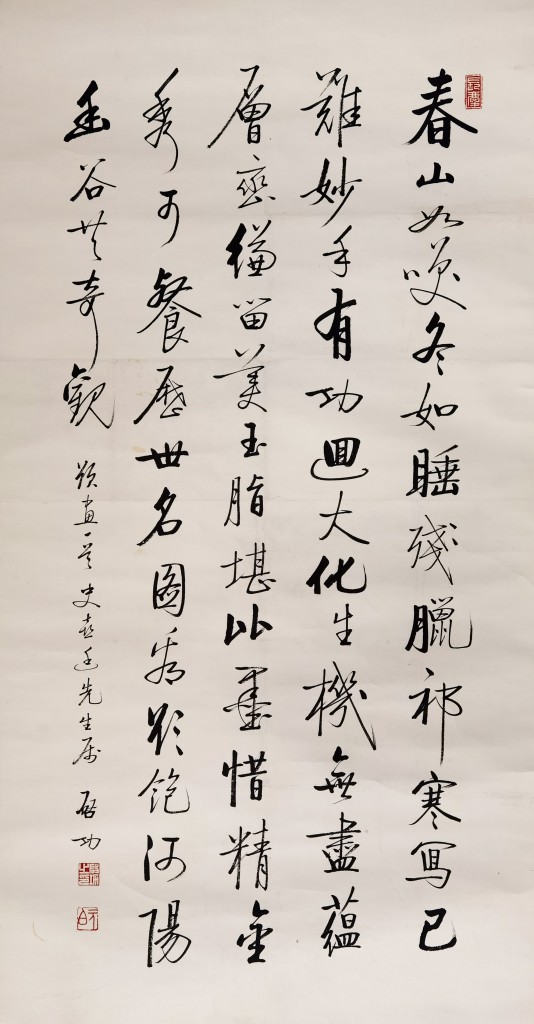 春山如咲冬如睡殘臘祁寒寫已
難妙手有功迴大化生機無盡蘊
層巒縑留美玉脂堪比墨惜精金
秀可餐歷世名圖看欲飽河陽
幽谷共奇觀 題畫一首 史先生属 啟功